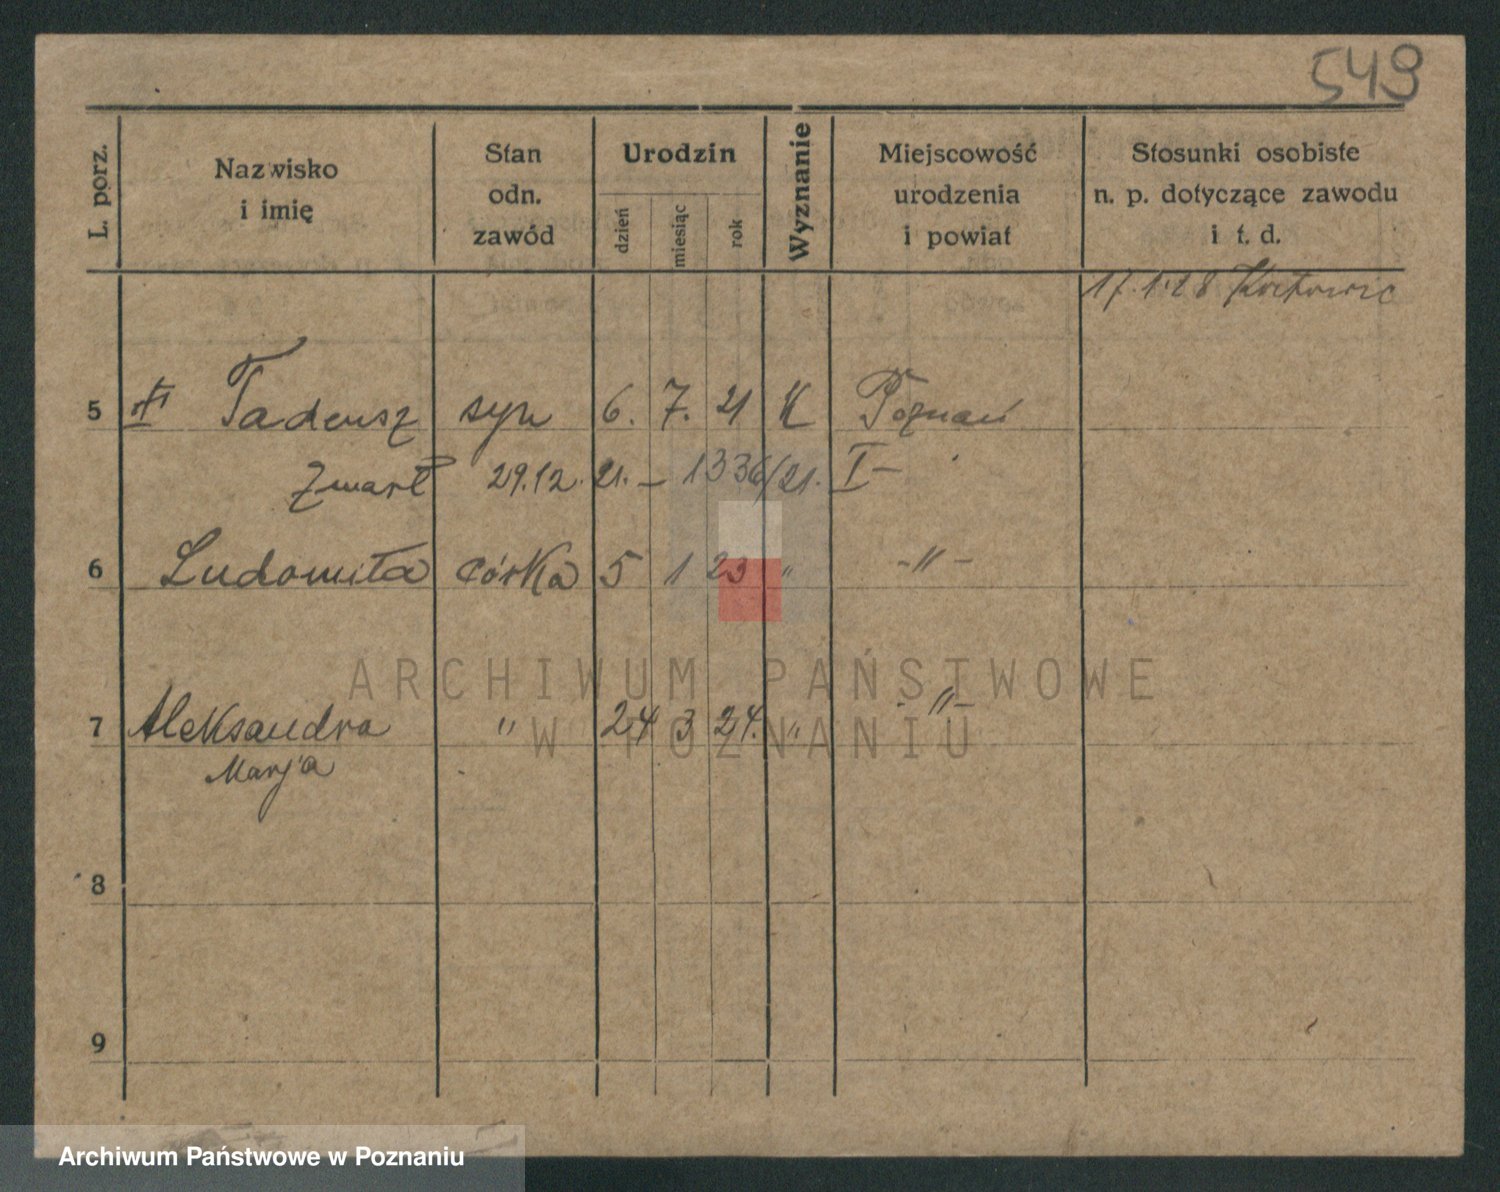 549
L. porz.
Nazwisko
i imię
Stan
odn.
zawód
Urodzin
dzień
miesiąc
rok
Wyznanie
Miejscowość
urodzenia
i powiat
Stosunki osobiste
n. p. dotyczące zawodu
i t. d.
17.1.28 Katowic
5 Tadeusz syn 6. 7. 21 K Poznań
Zmarł 29.12. 21. — 1336/21. I —
6 Ludomiła córka 5 1 23 " -"-
7 Aleksandra " 24 3 24. " -"-
Marja
8
9
ARCHIWUM PAŃSTWOWE
W POZNANIU
Archiwum Państwowe w Poznaniu